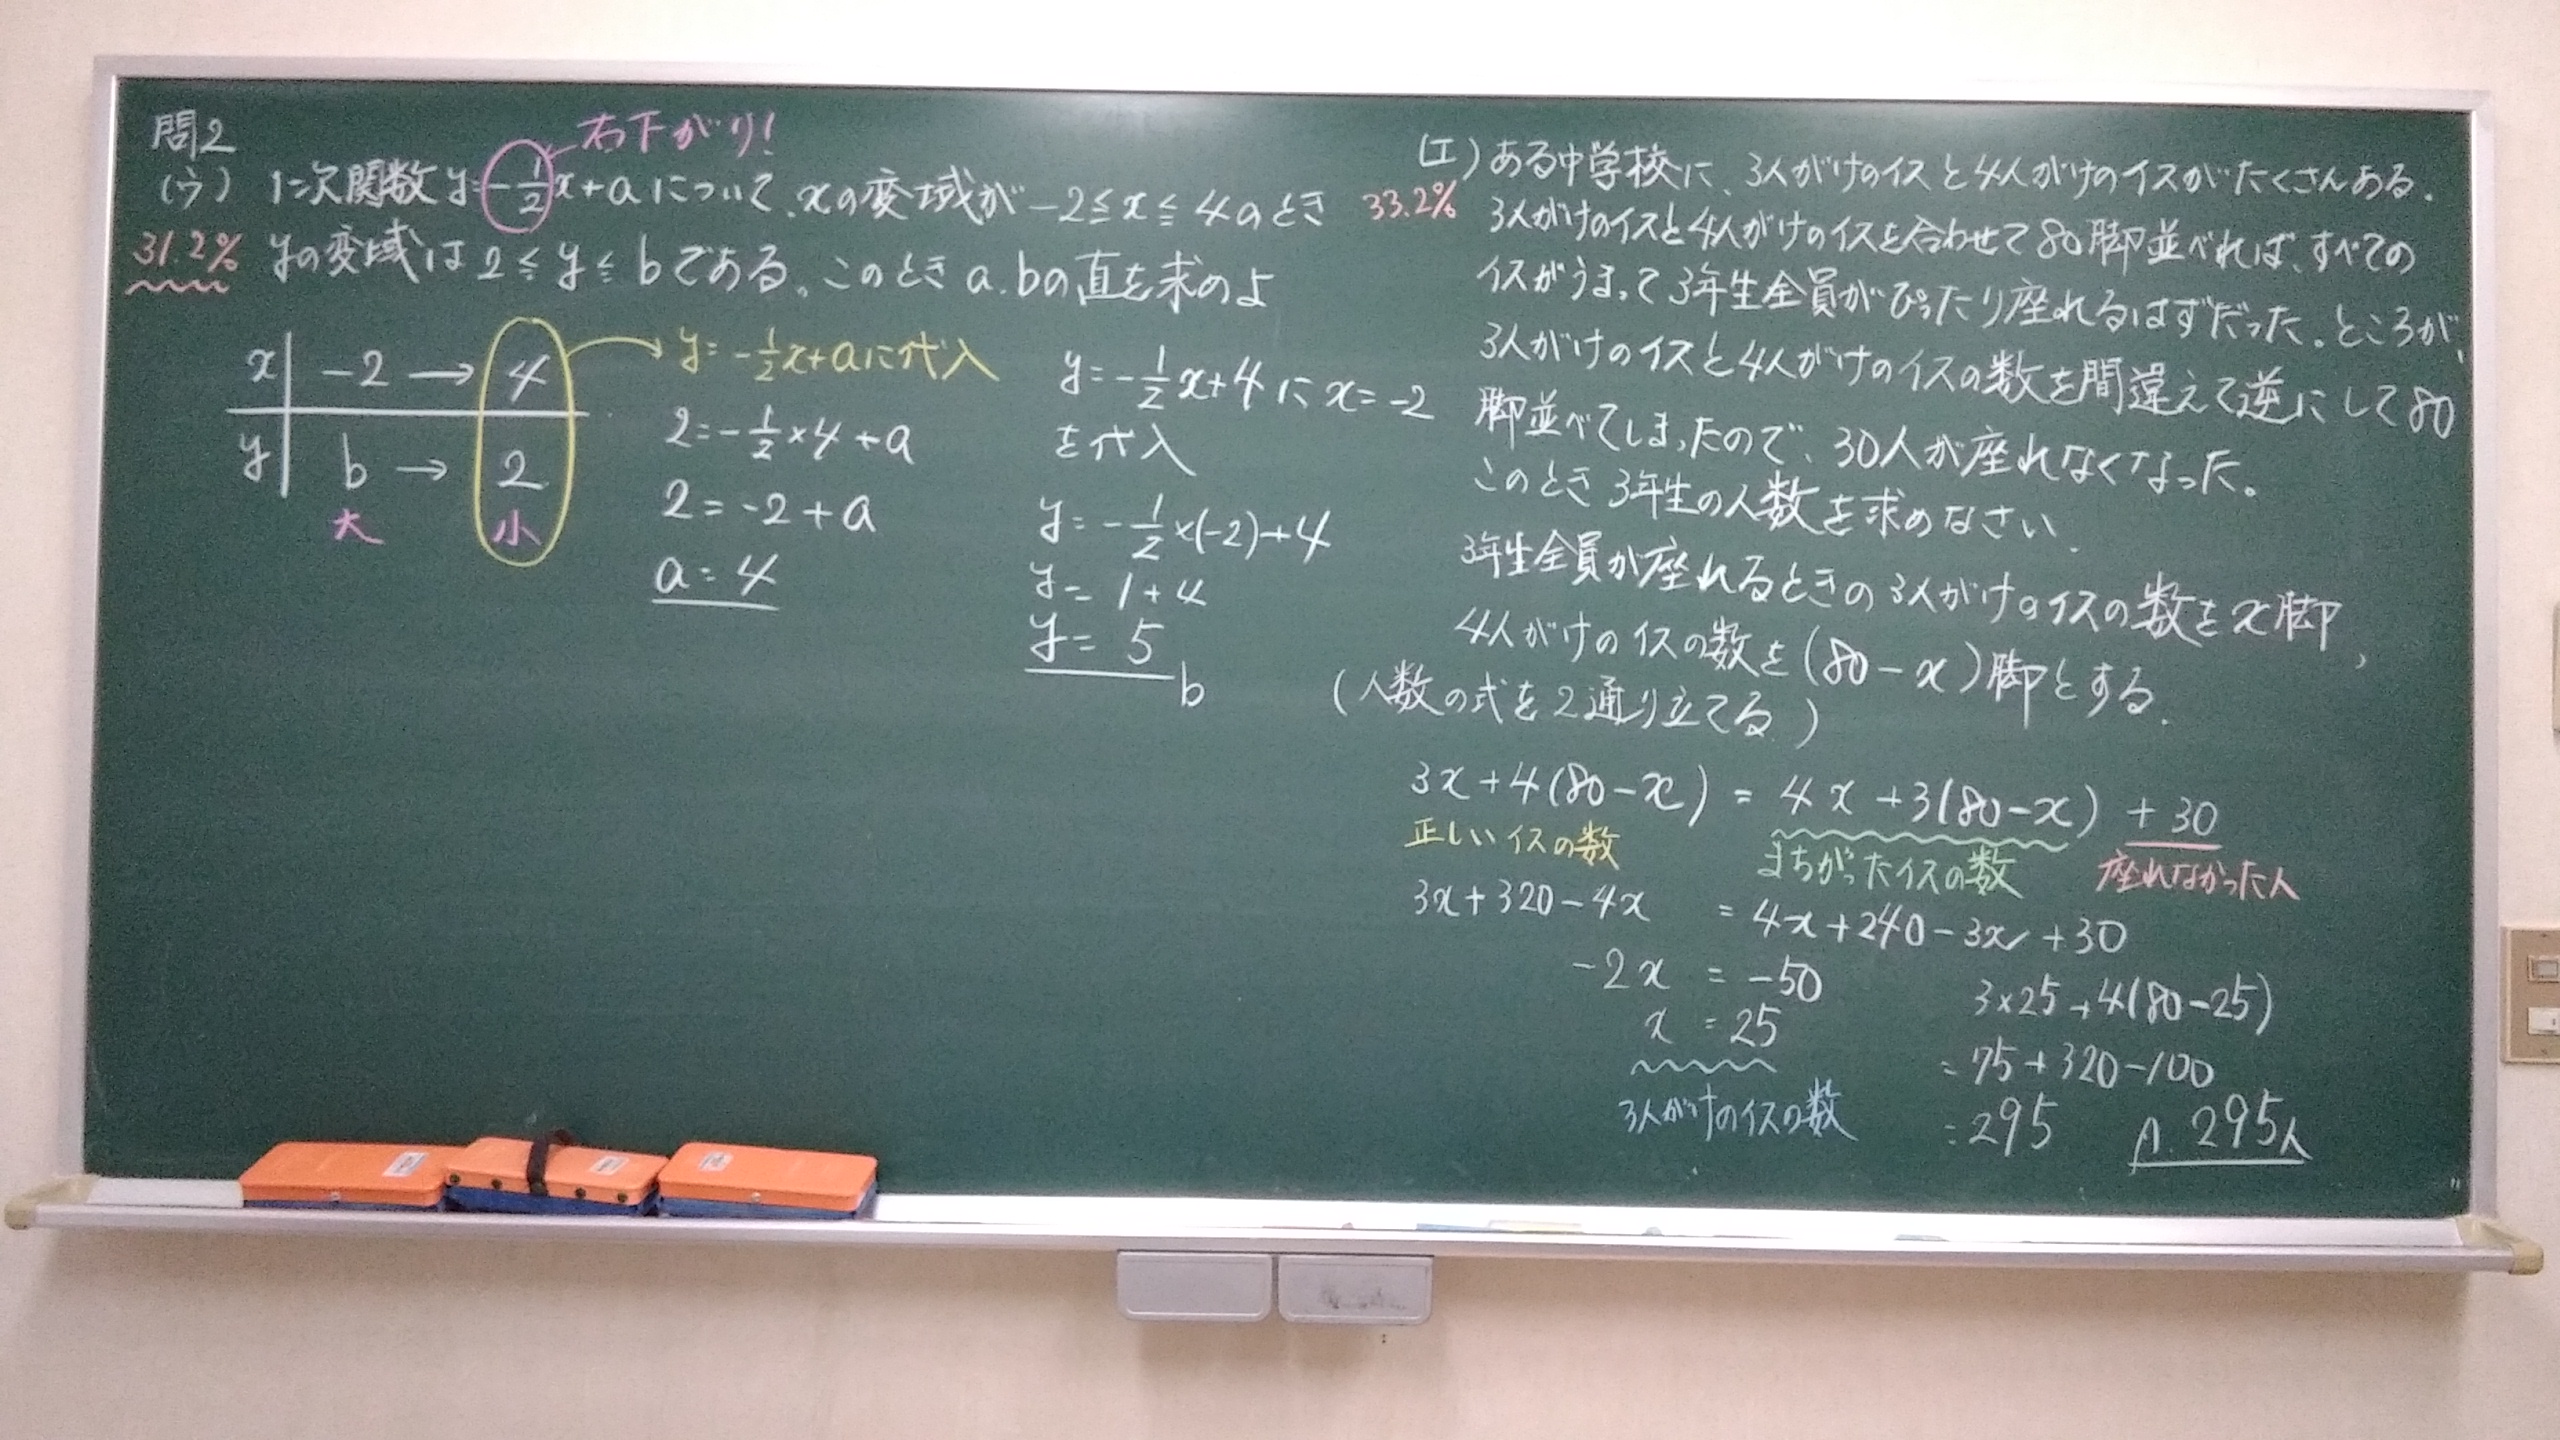 問2
右下がり!
(ウ) 1次関数y=-1/2x+aについて、xの変域が-2≦x≦4のとき
31.2% yの変域は2≦y≦bである。このときa.bの直を求めよ
x | -2 → 4
y | b → 2
大 小
y=-1/2x+aに代入
2=-1/2×4+a
2=-2+a
a=4
y=-1/2x+4にx=-2
を代入
y=-1/2×(-2)+4
y=1+4
y=5
b
(エ) ある中学校に、3人がけのイスと4人がけのイスがたくさんある.
33.2% 3人がけのイスと4人がけのイスを合わせて80脚並べれば、すべての
イスがうまって3年生全員がぴったり座れるはずだった。ところが、
3人がけのイスと4人がけのイスの数を間違えて逆にして80
脚並べてしまったので、30人が座れなくなった。
このとき3年生の人数を求めなさい.
3年生全員が座れるときの3人がけのイスの数をx脚,
4人がけのイスの数を(80-x)脚とする.
(人数の式を2通り立てる.)
3x+4(80-x) = 4x+3(80-x) +30
正しいイスの数 まちがったイスの数 座れなかった人
3x+320-4x = 4x+240-3x+30
-2x = -50
x = 25
3人がけのイスの数
3×25+4(80-25)
=75+320-100
=295 A. 295人